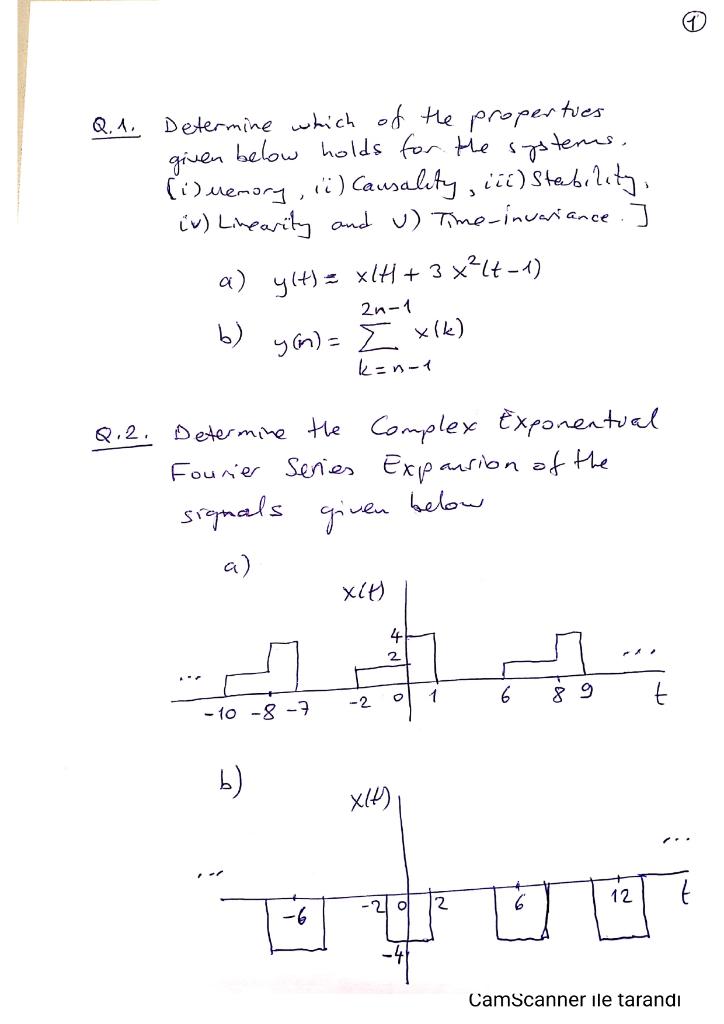 1
Q.1. Determine which of the properties
given below holds for the systems.
[i) Memory, ii) Causality, iii) Stability,
iv) Linearity and v) Time-invariance.]
a) y(t) = x(t) + 3 x²(t-1)
2n-1
b) y(n) = Σ x(k)
k=n-1
Q.2. Determine the Complex Exponential
Fourier Series Expansion of the
signals given below
a)
x(t)
4
2
...
...
-10 -8 -7 -2 0 1 6 8 9 t
b)
x(t)
...
...
-6 -2 0 2 6 12 t
-4
CamScanner ile tarandı